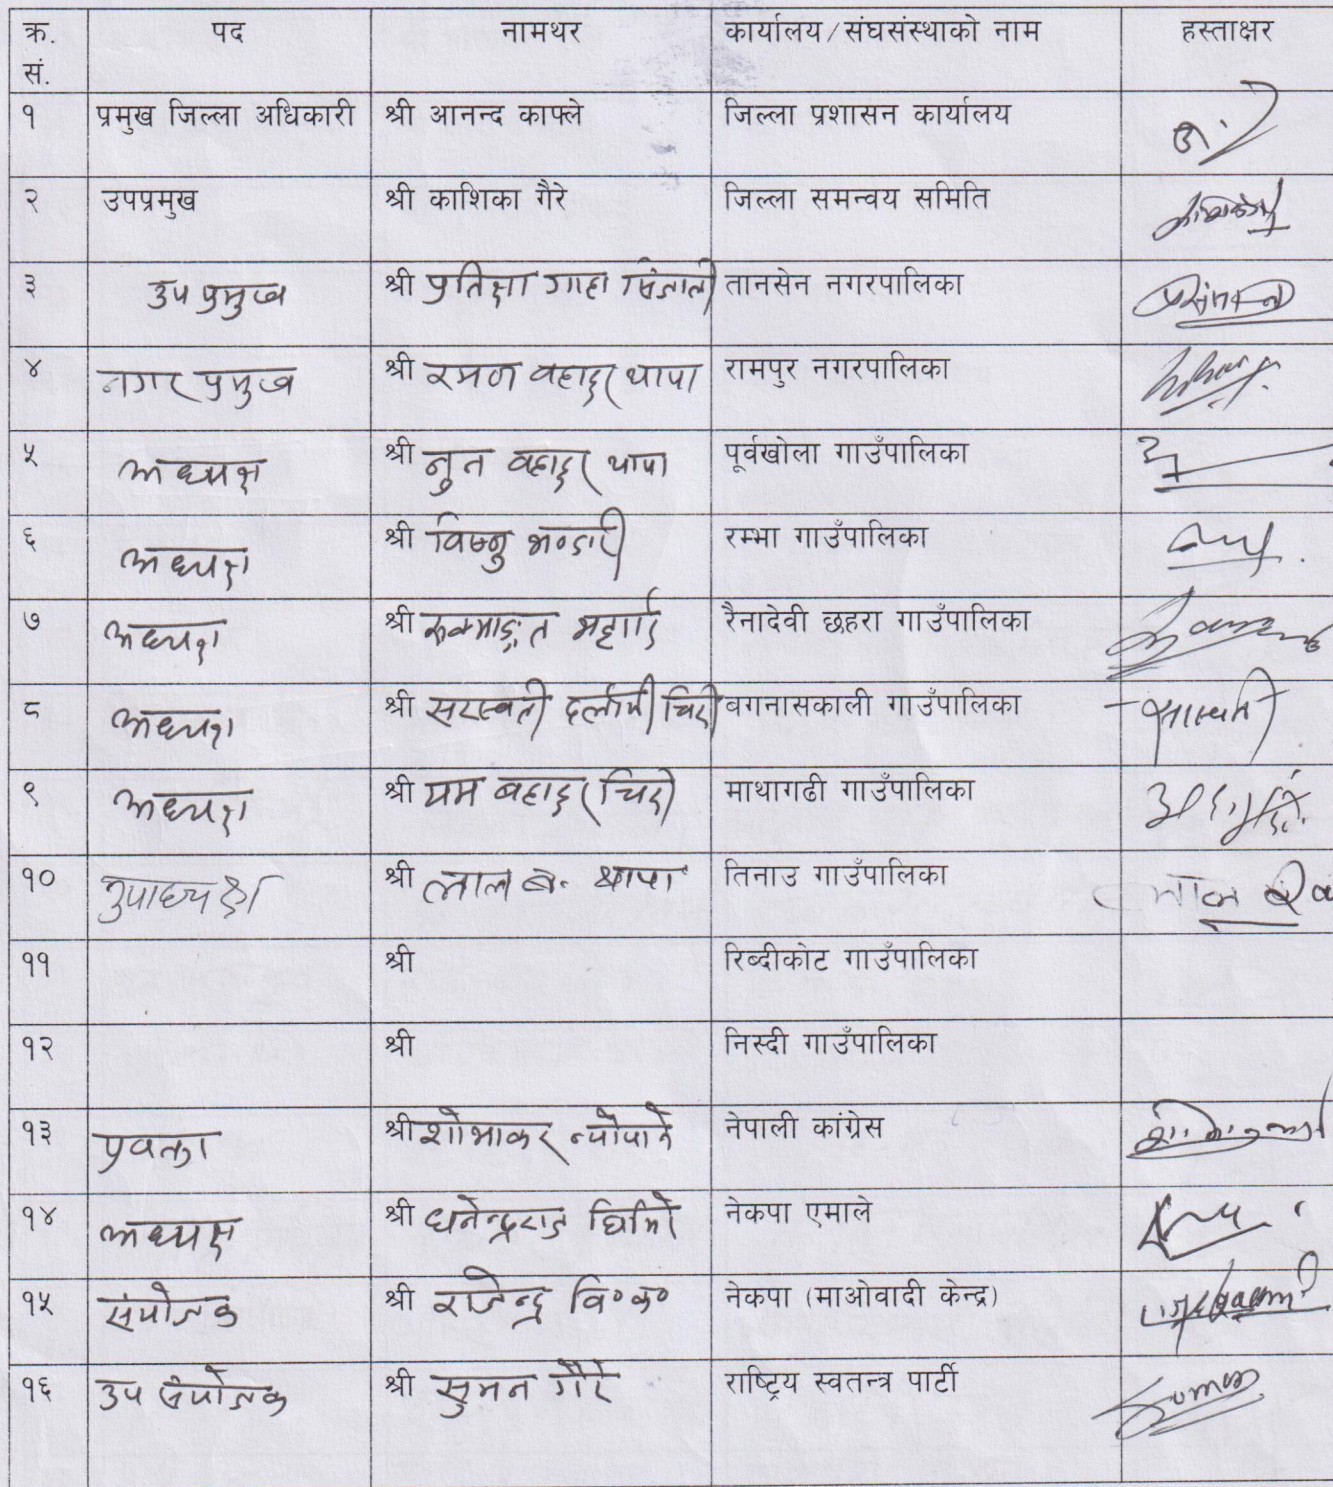 क्र. सं. पद नामथर कार्यालय/संघसंस्थाको नाम हस्ताक्षर
१ प्रमुख जिल्ला अधिकारी श्री आनन्द काफ्ले जिल्ला प्रशासन कार्यालय
२ उपप्रमुख श्री काशिका गैरे जिल्ला समन्वय समिति
३ उप प्रमुख श्री प्रतिक्षा गाहा सिंजाली तानसेन नगरपालिका
४ नगर प्रमुख श्री रमण बहादुर थापा रामपुर नगरपालिका
५ अध्यक्ष श्री नुन बहादुर थापा पूर्वखोला गाउँपालिका
६ अध्यक्ष श्री विष्णु भण्डारी रम्भा गाउँपालिका
७ अध्यक्ष श्री भट्टराई रैनादेवी छहरा गाउँपालिका
८ अध्यक्ष श्री सरस्वती दर्लामी वगनासकाली गाउँपालिका
९ अध्यक्ष श्री यम बहादुर माथागढी गाउँपालिका
१० उपाध्यक्ष श्री लाल ब. थापा तिनाउ गाउँपालिका
११ श्री रिब्दीकोट गाउँपालिका
१२ श्री निस्दी गाउँपालिका
१३ प्रवक्ता श्री शोभाकर न्यौपाने नेपाली कांग्रेस
१४ अध्यक्ष श्री धनेन्द्रराज घिमिरे नेकपा एमाले
१५ संयोजक श्री राजेन्द्र वि०क० नेकपा (माओवादी केन्द्र)
१६ उप संयोजक श्री सुमन गैरे राष्ट्रिय स्वतन्त्र पार्टी